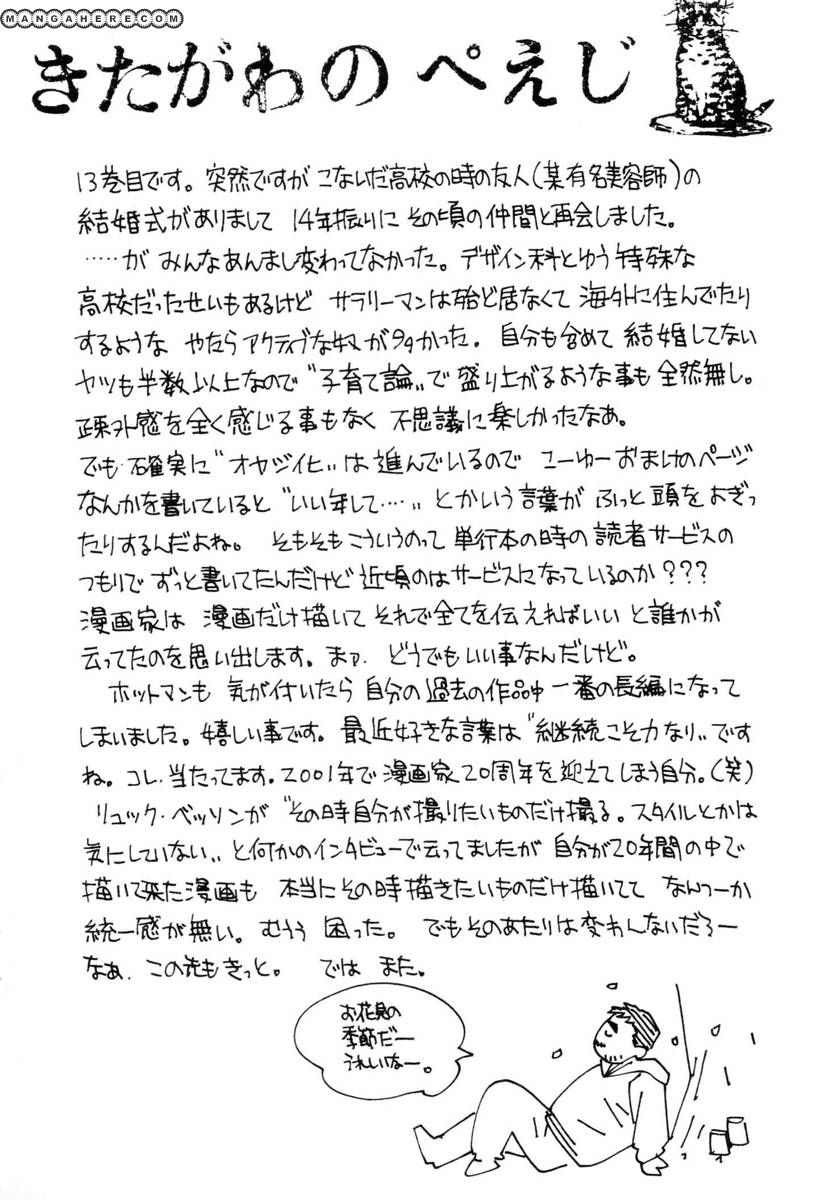 MANGAHERE.COM
きたがわの ぺえじ
13巻目です。突然ですが こないだ高校の時の友人(某有名美容師)の
結婚式がありまして 14年振りに その頃の仲間と再会しました。
‥‥‥が みんなあんまし変わってなかった。デザイン科とゆう特殊な
高校だったせいもあるけど サラリーマンは殆ど居なくて 海外に住んでたり
するような やたらアクティブな奴が多かった。自分も含めて 結婚してない
ヤツも半数以上なので〝子育て論〟で 盛り上がるような事も全然無し。
疎外感を全く感じる事もなく 不思議に楽しかったなあ。
でも 確実に〝オヤジ化〟は進んでいるので こーゆーおまけのページ
なんかを書いていると〝いい年して‥‥〟とかいう言葉が ふっと頭をよぎっ
たりするんだよね。 そもそもこういうのって 単行本の時の 読者サービスの
つもりで ずっと書いてたんだけど 近頃のはサービスになっているのか???
漫画家は 漫画だけ描いて それで全てを伝えればいい と誰かが
云ってたのを思い出します。まァ. どうでもいい事なんだけど。
ホットマンも 気が付いたら 自分の過去の作品中 一番の長編になって
しまいました。嬉しい事です。最近好きな言葉は〝継続こそ力なり〟です
ね。コレ. 当たってます。2001年で漫画家20周年を迎えてしまう自分。(笑)
リュック・ベッソンが〝その時自分が撮りたいものだけ撮る。スタイルとかは
気にしていない〟と何かのインタビューで云ってましたが 自分が20年間の中で
描いて来た漫画も 本当にその時描きたいものだけ描いてて なんつーか
統一感が無い。むうう 困った。 でもそのあたりは変わんないだろー
なぁ. この先もきっと。 では また。
お花見の
季節だー
うれしいなー。